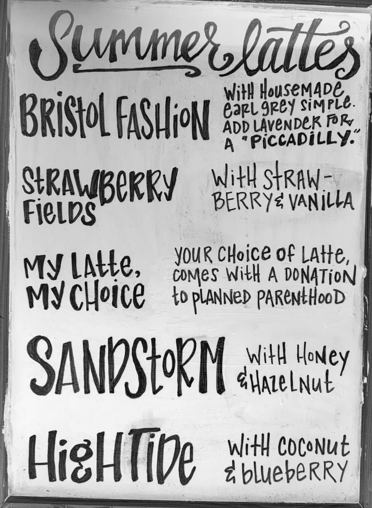 Summer lattes
BRISTOL FASHION
WITH HOUSEMADE
EARL GREY SIMPLE.
ADD LAVENDER FOR
A "PICCADILLY."
STRAWBERRY
FIELDS
WITH STRAW-
BERRY & VANILLA
MY LATTE,
MY CHOICE
YOUR CHOICE OF LATTE,
COMES WITH A DONATION
TO PLANNED PARENTHOOD
SANDSTORM
WITH HONEY
& HAZELNUT
HIGH TIDE
WITH COCONUT
& BLUEBERRY